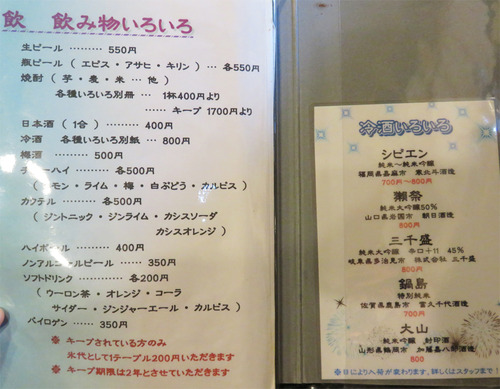 飲　飲み物いろいろ
生ビール ……… 550円
瓶ビール（ エビス・アサヒ・キリン ）… 各550円
焼酎（ 芋・麦・米 … 他 ）
各種いろいろ別冊 … 1杯400円より
…… キープ 1700円より
日本酒（ 1合 ）……… 400円
冷酒　各種いろいろ別紙 … 800円
梅酒 ……… 500円
チューハイ ……… 各500円
（ レモン・ライム・梅・白ぶどう・カルピス ）
カクテル ……… 各500円
（ ジントニック・ジンライム・カシスソーダ
カシスオレンジ ）
ハイボール ……… 400円
ノンアルコールビール …… 350円
ソフトドリンク ……… 各200円
（ ウーロン茶・オレンジ・コーラ
サイダー・ジンジャーエール・カルピス ）
バイロゲン …… 350円
※ キープされている方のみ
氷代として1テーブル200円いただきます
※ キープ期限は2年とさせていただきます
冷酒いろいろ
シピエン
純米～純米吟醸
福岡県嘉麻市　寒北斗酒造
700円～800円
獺祭
純米大吟醸50%
山口県岩国市　朝日酒造
800円
三千盛
純米大吟醸　辛口＋11　45%
岐阜県多治見市　株式会社 三千盛
800円
鍋島
特別純米
佐賀県鹿島市　富久千代酒造
700円
大山
純米吟醸　封印酒
山形県鶴岡市　加藤嘉八郎酒造
800
※日により入荷が変わります、詳しくはスタッフまで！